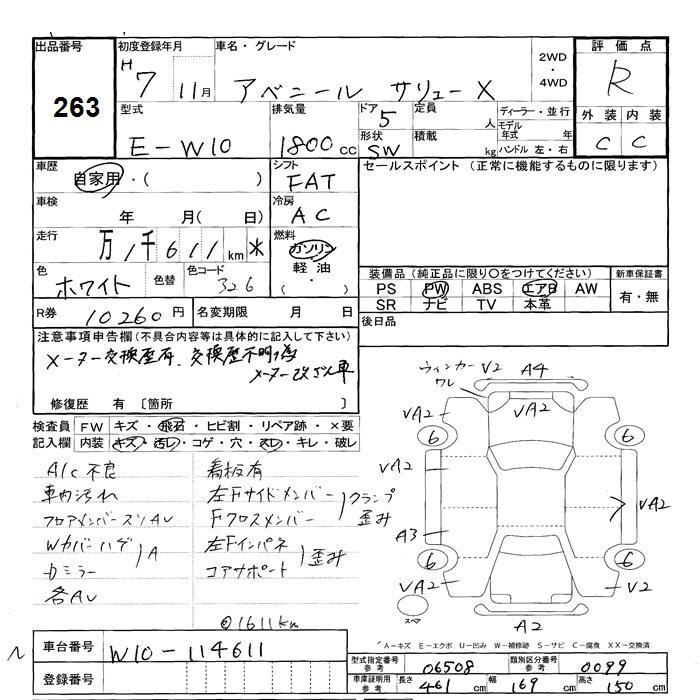 出品番号
263
初度登録年月
H 7年 11月
車名・グレード
アベニール サリューX
2WD・4WD
評価点
R
型式
E-W10
排気量
1800cc
ドア
5
形状
SW
定員 人
積載 kg
ディーラー・並行
モデル年式 年
ハンドル 左・右
外装 内装
C C
車歴
自家用・( )
シフト
FAT
セールスポイント (正常に機能するものに限ります)
車検
年 月( 日)
冷房
AC
走行
万1千611km ※
燃料
ガソリン・軽油・( )
色
ホワイト
色替
色コード
326
装備品(純正品に限り○をつけてください)
PS PW ABS エアB AW
SR ナビ TV 本革
新車保証書
有・無
R券 10260円
名変期限 月 日
後日品
注意事項申告欄(不具合内容等は具体的に記入して下さい)
メーター交換歴有、交換歴不明の為
メーター改ざん車
修復歴 有 〔箇所 〕
検査員記入欄
FW キズ・飛石・ヒビ割・リペア跡・×要
内装 キズ・汚レ・コゲ・穴・スレ・キレ・破レ
A/C不良
車内汚れ
フロアメンバースリAU
Wカバーハゲ
Dミラー
A
各AU
看板有
左Fサイドメンバー
Fクロスメンバー
クランプ歪み
左Fインパネ
コアサポート
歪み
@1611km
ウィンカーワレ
V2 A4
VA2 VA2
6 6
VA2 VA2
A3
6 6
VA2 V2
スペア
A2
A-キズ E-エクボ U-凹み W-補修跡 S-サビ C-腐食 XX-交換済
車台番号
W10-114611
登録番号
型式指定番号参考
06508
類別区分番号参考
0099
車庫証明用参考
長さ 461cm 幅 169cm 高さ 150cm